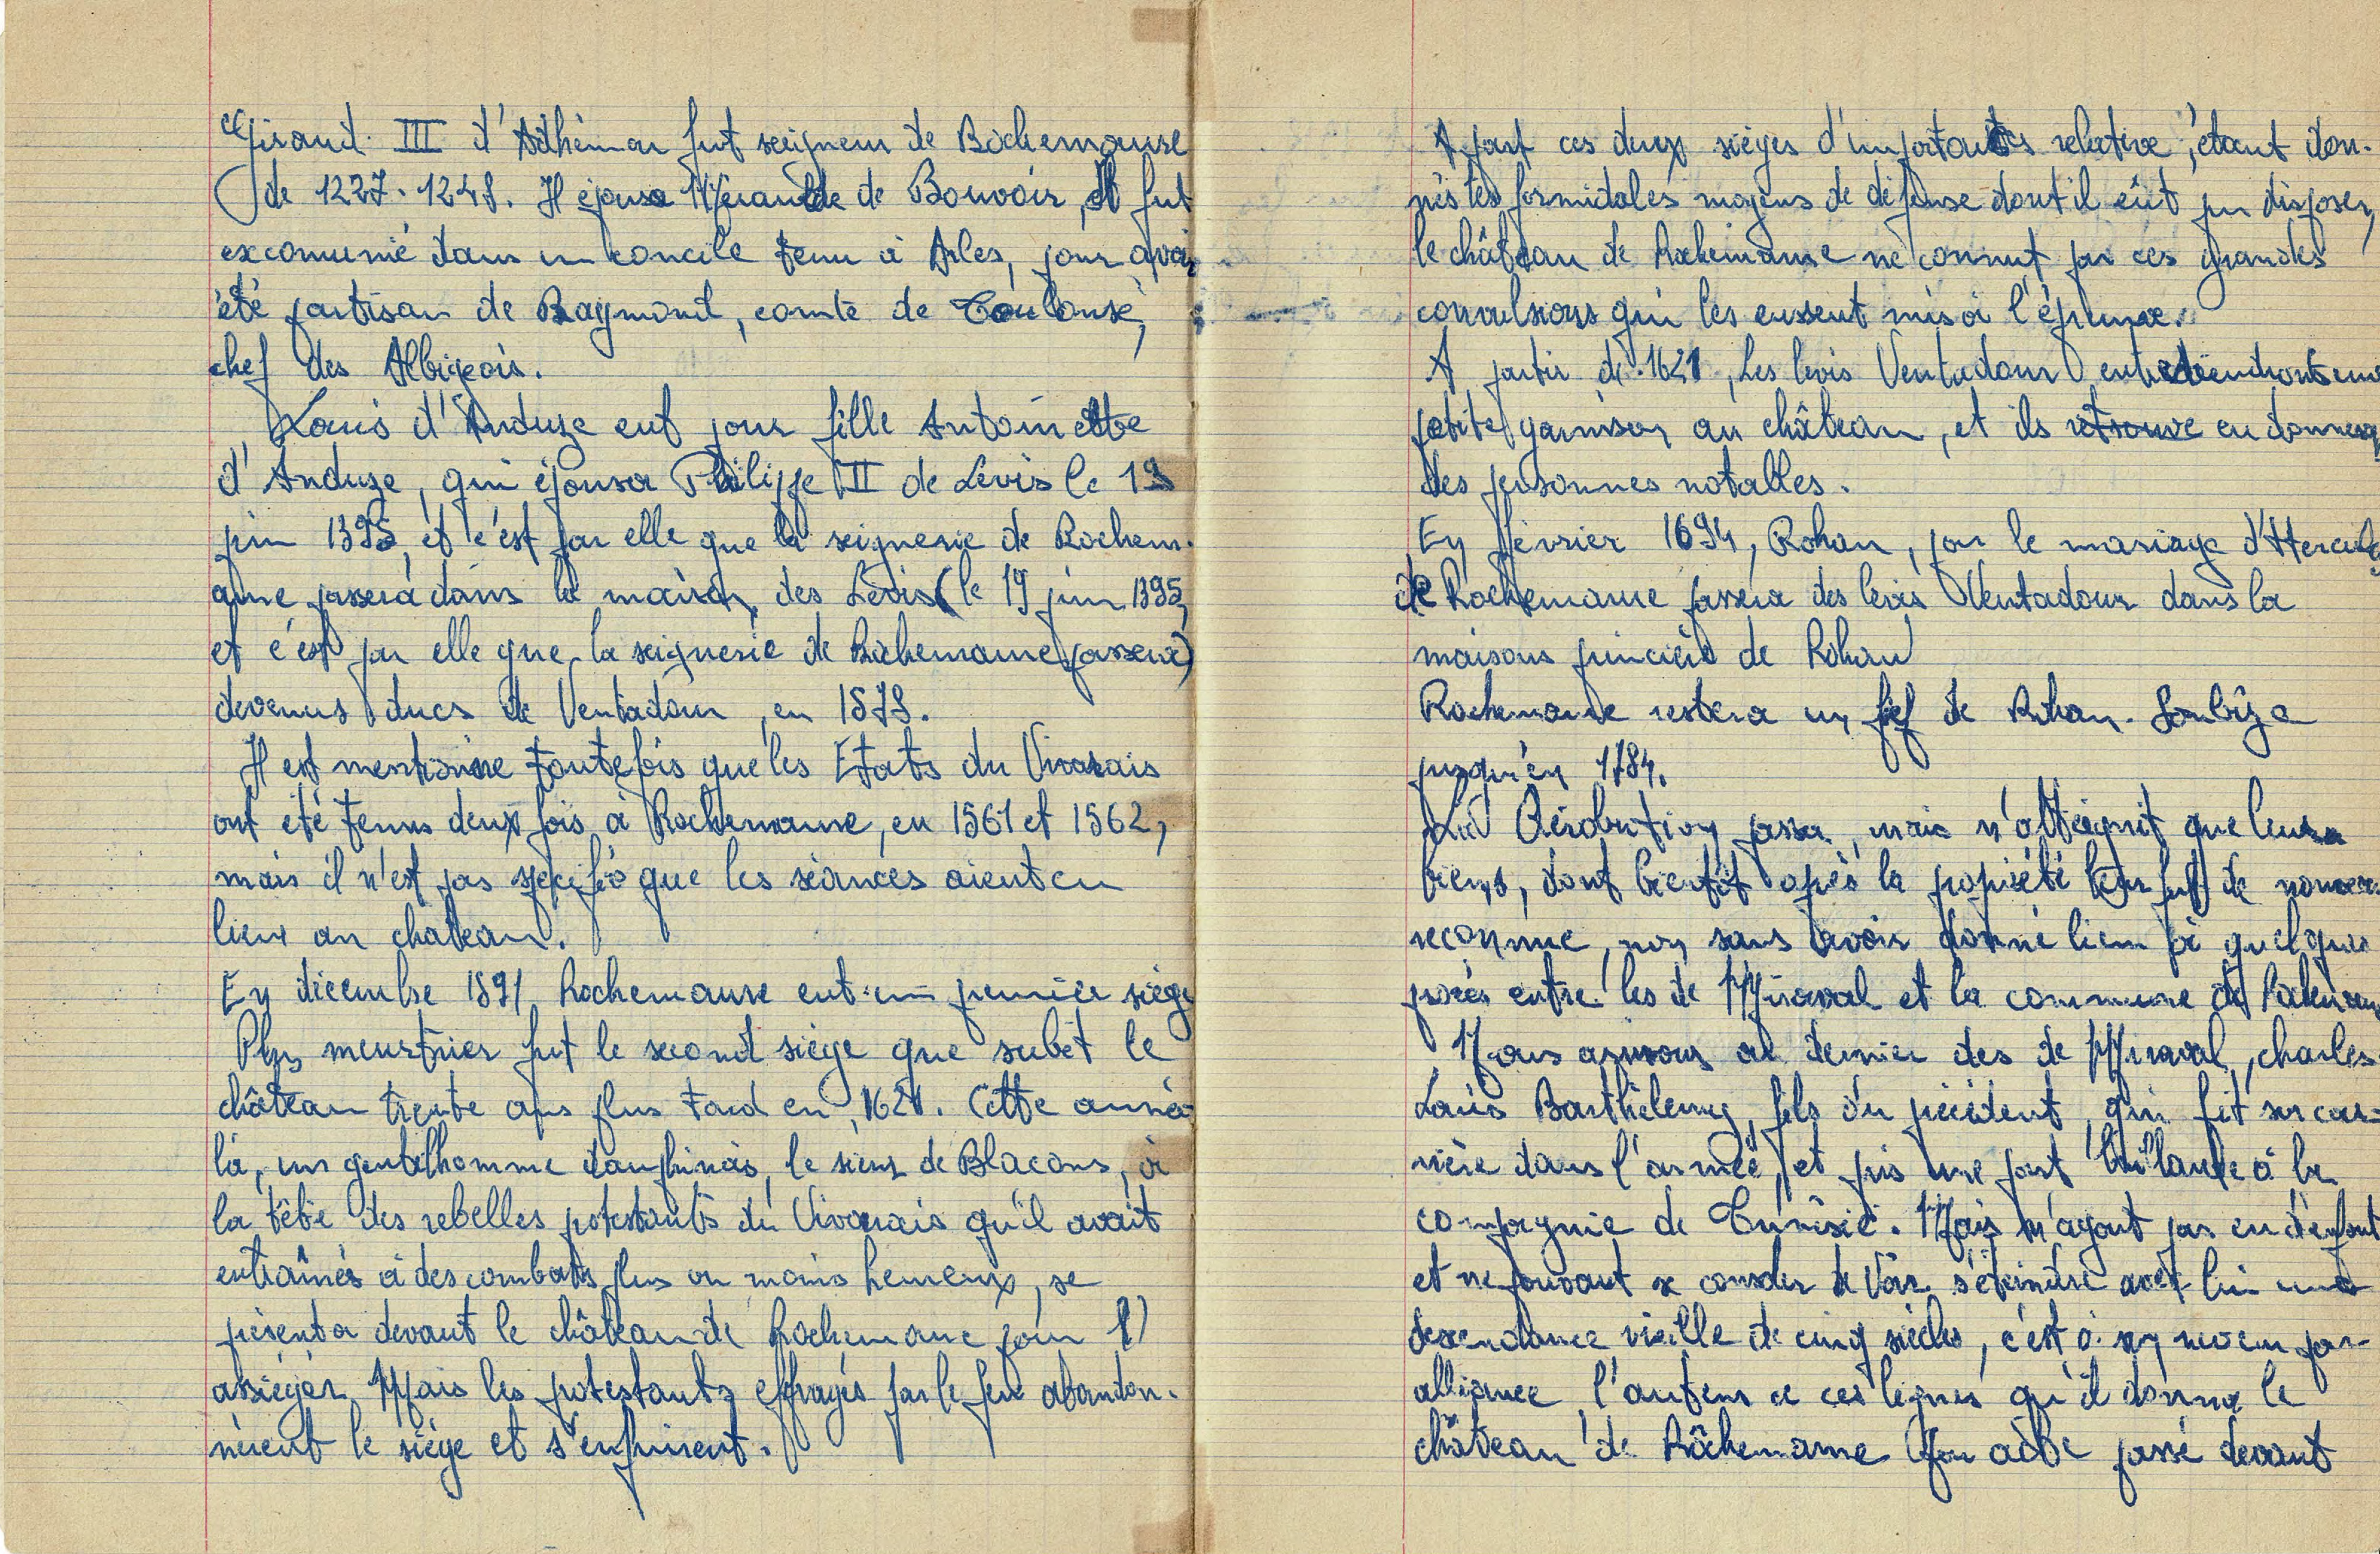 Giraud III d'Adhémar fut seigneur de Rochemaure
de 1227-1248. Il épousa Méraude de Bouvoir, et fut
excomunié dans un concile tenu à Arles, pour avoir
été partisan de Raymond, comte de Toulouse,
chef des Albigeois.
Louis d'Anduze eut pour fille Antoinette
d'Anduze, qui épousa Philippe II de Levis le 19
juin 1395, et c'est par elle que la seignerie de Rochem-
aure passera dans la maison des Lévis (le 19 juin 1395,
et c'est par elle que la seignerie de Rochemaure passera)
devenus ducs de Ventadour, en 1578.
Il est mentionne toutefois que les Etats du Vivarais
ont été tenus deux fois à Rochemaure, en 1561 et 1562,
mais il n'est pas spécifié que les séances aient eu
lieux au chateau.
En décembre 1591 Rochemaure eut un premier siège
Plus meurtrier fut le second siège que subit le
château trente ans plus tard en 1621. Cette année
là, un gentilhomme dauphinois, le sieur de Blacons, à
la tête des rebelles protestants du Vivarais qu'il avait
entraînés à des combats plus ou moins heureux, se
présenta devant le château de Rochemaure pour l'
assiéger. Mais les protestants effrayés par le feu abandon-
nèrent le siège et s'enfuirent.
A part ces deux sièges d'importances relative, étant don-
nés les formidables moyens de défense dont il eût pu disposer,
le château de Rochemaure ne connut pas ces grandes
convulsions qui les eussent mis à l'épreuve.
A partir de 1621, les levis Ventadour entretiendront une
petite garnison au château, et ils retrouve en donneront
des personnes notables.
En février 1694, Rohan, par le mariage d'Hercule
de Rochemaure passera des levis Ventadour dans la
maisons princière de Rohan
Rochemaure restera un fief de Rohan-Soubize
jusqu'en 1784.
La Révolution passa, mais n'atteignit que leurs
biens, dont bientôt après la propriété leur fut de nouveau
reconnue, non sans avoir donné lieu à quelques
procès entre les de Miraval et la commune de Rochemaure
Nous arrivons au dernier des de Miraval, charles
Louis Barthélemy, fils du précédent, qui fit sa car-
rière dans l'armée, et pris une part brillante à la
compagnie de Tunisie. Mais n'ayant pas eu d'enfant
et ne pouvant se consoler de voir s'éteindre avec lui une
descendance vieille de cinq siècles, c'est à son neveu par
alliance, l'auteur de ces lignes qu'il donna le
château de Rôchemaure (par acte passé devant